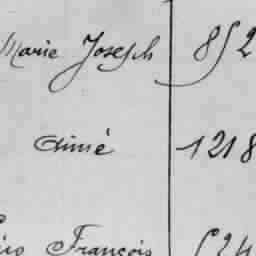 Marie Joseph 852
Aimé 1218
François 524